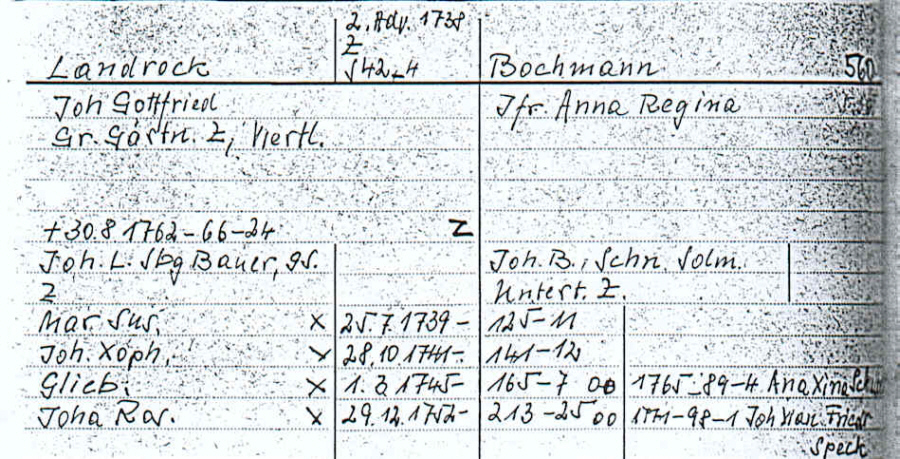 2. Adv. 1738
Z
Landrock S42-4 Bochmann 560
Joh Gottfried Jfr. Anna Regina
Gr. Gärtn. Z, Viertl.
+30.8 1762-66-24 Z
Joh. L. Sbg Bauer, gs. Joh. B., Schn. Solm.
Z Untert. Z.
Mar. Sus. x 25.7.1739- 125-11
Joh. Xoph. x 28.10 1741-. 141-12
Glieb. x 1.3 1745- 165-7 oo 1765-89-4 Ana Xina
Joha Ros. x 29.12.1752- 213-25 oo 1771-98-1 Joh
Speck